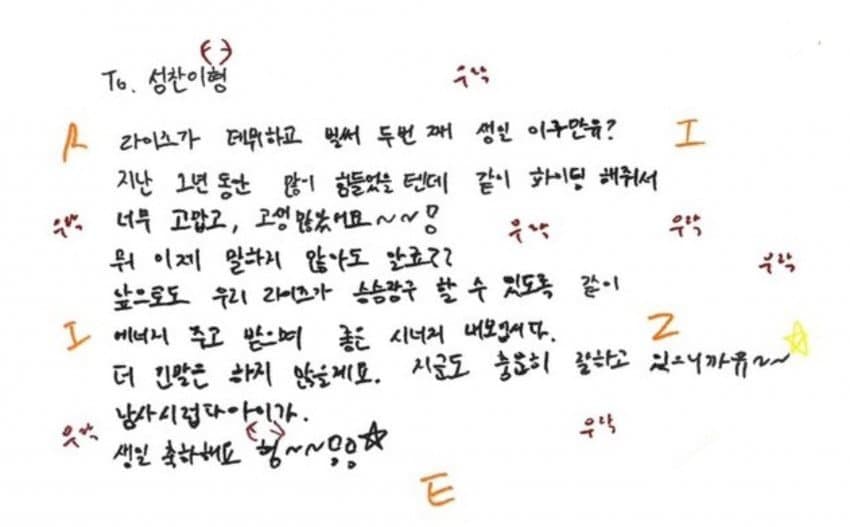 To. 성찬이형
우락
R 라이즈가 데뷔하고 벌써 두번 째 생일 이구만유? I
지난 1년 동안 많이 힘들었을 텐데 같이 화이팅 해줘서
우락 너무 고맙고, 고생많았어요~~ 우락 우락
뭐 이제 말하지 않아도 알죠??
우락
앞으로도 우리 라이즈가 승승장구 할 수 있도록 같이
I 에너지 주고 받으며 좋은 시너지 내봅시다. Z
더 긴말은 하지 않을게요. 지금도 충분히 잘하고 있으니까유~~
우락 남사시럽다아이가. 우락
생일 축하해요 형~~
E